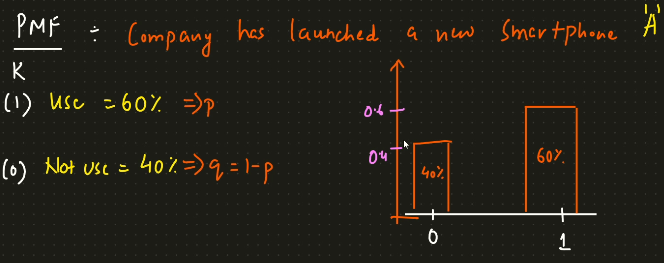 PMF ÷ Company has launched a new smartphone 'A'
K
(1) Use = 60% ⇒ p
(0) Not use = 40% ⇒ q = 1-p
0.6
0.4
40%
60%
0
1